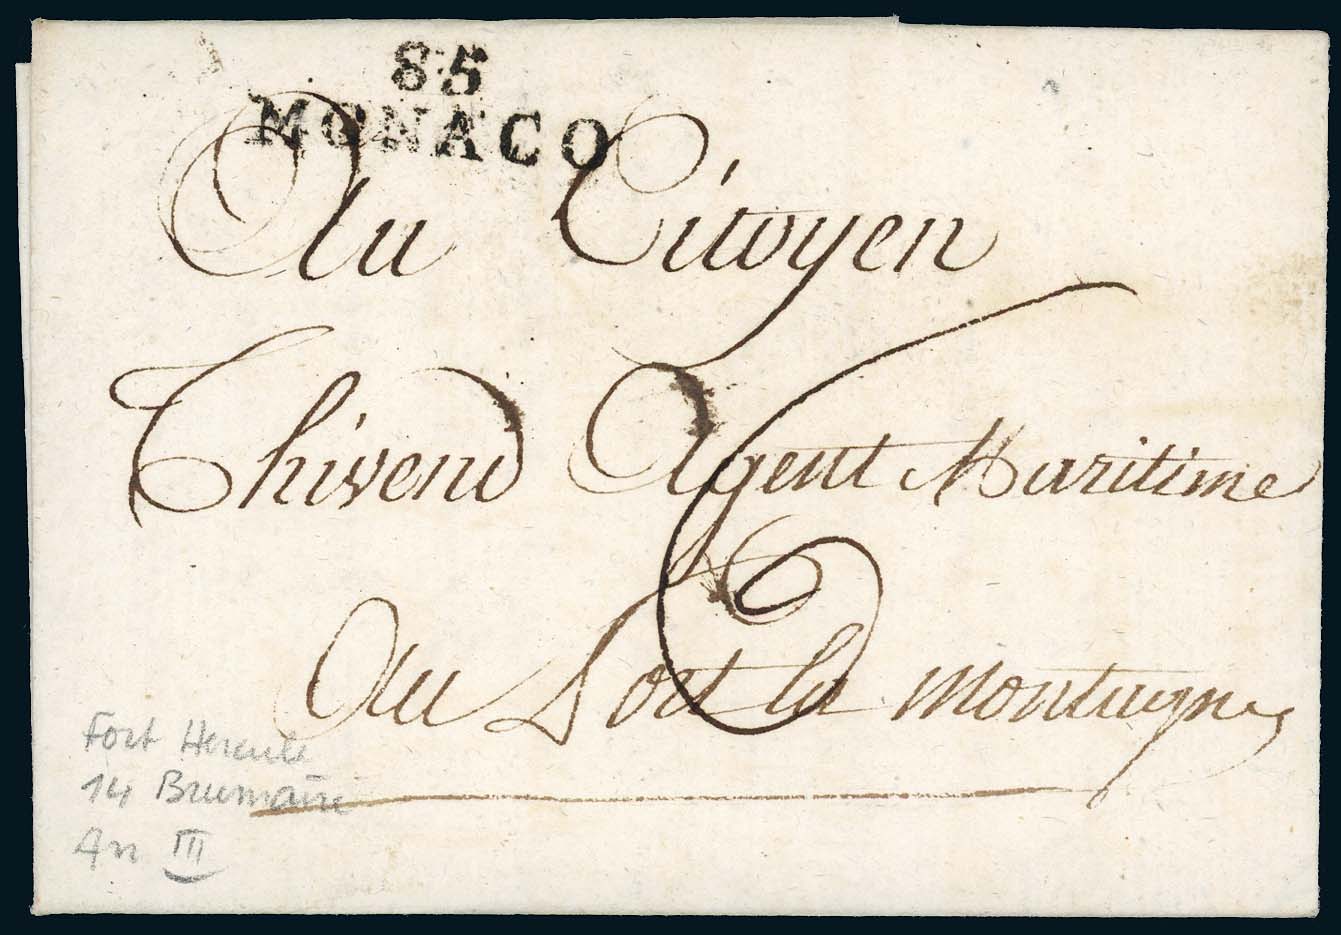 85
MONACO
Au Citoyen
Thivend Agent Maritime
6
Au Port la montagne
Fort Hercule
14 Brumaire
An III